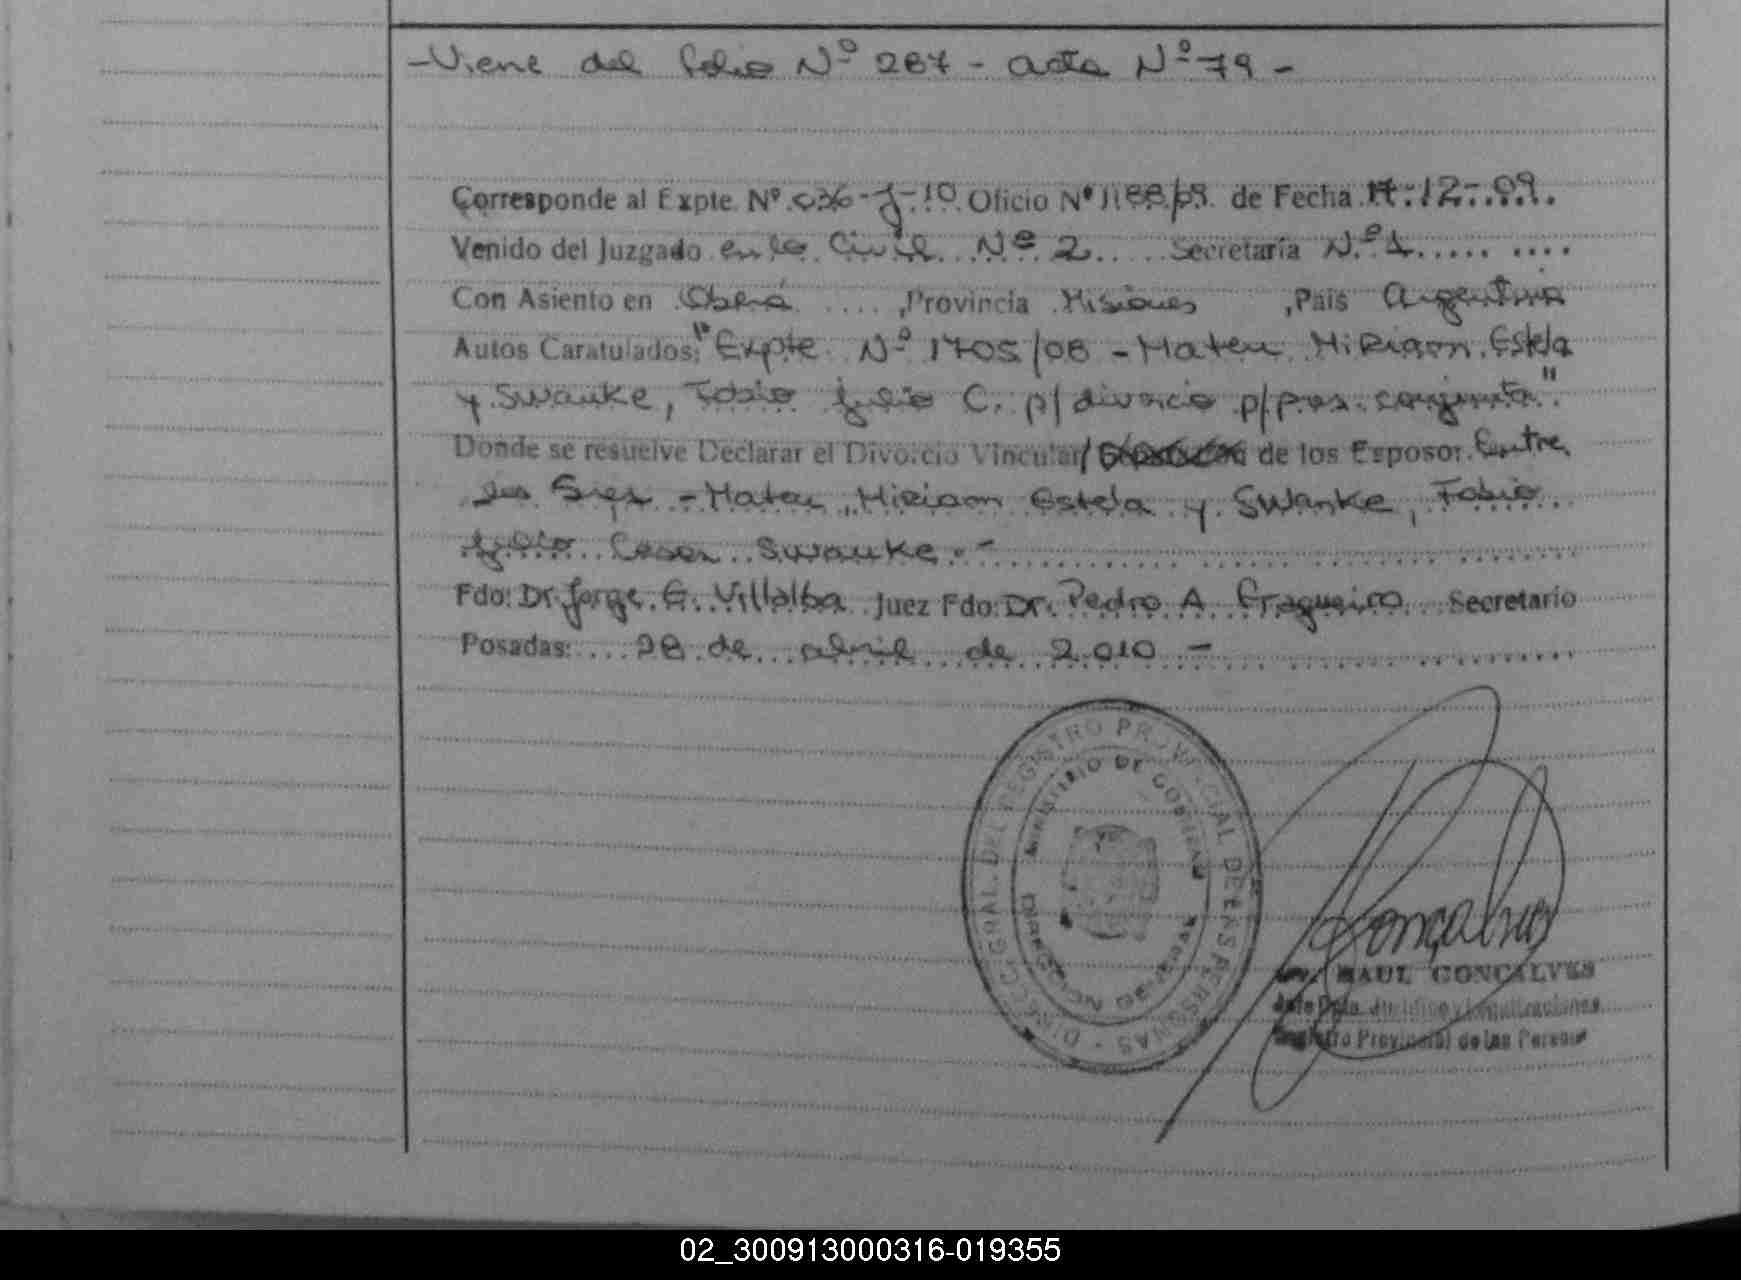 -Viene del folio Nº 287 - acta Nº 79 -
Corresponde al Expte. Nº 036-J-10 Oficio Nº 1188/09 de Fecha 17-12-09.
Venido del Juzgado en lo Civil Nº 2 Secretaría Nº 1
Con Asiento en Oberá, Provincia Misiones, País Argentina
Autos Caratulados: "Expte Nº 1705/08 - Mateu Miriam Estela
y Swanke, Fabio Julio C. p/ divorcio p/pres. conjunta"
Donde se resuelve Declarar el Divorcio Vincular/ de los Esposos Entre
los Sres - Mateu, Miriam Estela y Swanke, Fabio
Julio Cesar Swanke.-
Fdo: Dr. Jorge E. Villalba Juez Fdo: Dr. Pedro A. Fragueiro Secretario
Posadas: 28 de abril de 2.010 -
DIRECC. GRAL. DEL REGISTRO PROVINCIAL DE LAS PERSONAS -
MINISTERIO DE GOBIERNO
Gonçalves
RAUL GONCALVES
Jefe Dpto. Jurídico y Legalizaciones
Registro Provincial de las Personas
02_300913000316-019355